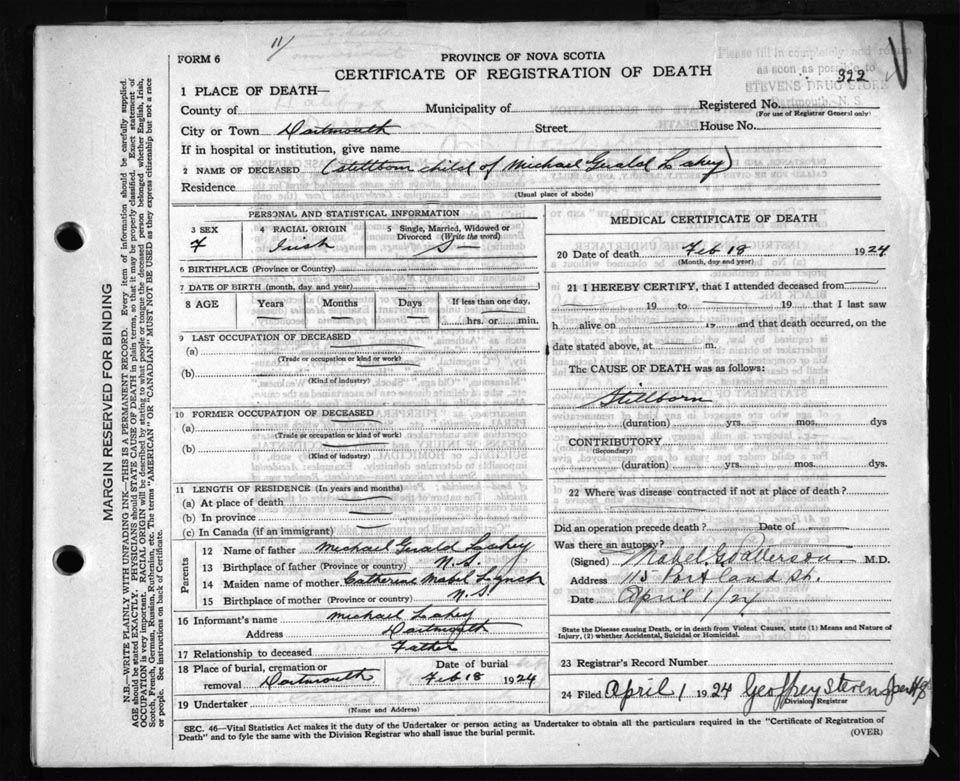 11/
FORM 6
PROVINCE OF NOVA SCOTIA
CERTIFICATE OF REGISTRATION OF DEATH
Please fill in completely and return
as soon as possible to
STEVENS DRUG STORE
Dartmouth, N. S.
322
1 PLACE OF DEATH—
County of Halifax Municipality of Registered No.
(For use of Registrar General only)
City or Town Dartmouth Street House No.
If in hospital or institution, give name
2 NAME OF DECEASED (Stillborn child of Michael Gerald Lahey)
Residence
(Usual place of abode)
PERSONAL AND STATISTICAL INFORMATION
3 SEX 4 RACIAL ORIGIN 5 Single, Married, Widowed or Divorced (Write the word)
F Irish S
6 BIRTHPLACE (Province or Country)
7 DATE OF BIRTH (month, day and year)
8 AGE Years Months Days If less than one day,
hrs. or min.
9 LAST OCCUPATION OF DECEASED
(a)
(Trade or occupation or kind or work)
(b)
(Kind of industry)
10 FORMER OCCUPATION OF DECEASED
(a)
(Trade or occupation or kind or work)
(b)
(Kind of industry)
11 LENGTH OF RESIDENCE (In years and months)
(a) At place of death
(b) In province
(c) In Canada (if an immigrant)
Parents
12 Name of father Michael Gerald Lahey
13 Birthplace of father (Province or country) N.S.
14 Maiden name of mother Catherine Mabel Lynch
15 Birthplace of mother (Province or country) N.S.
16 Informant's name Michael Lahey
Address Dartmouth
17 Relationship to deceased Father
18 Place of burial, cremation or Date of burial
removal Dartmouth Feb 18 1924
19 Undertaker
(Name and Address)
MEDICAL CERTIFICATE OF DEATH
20 Date of death Feb 18 1924
(Month, day and year)
21 I HEREBY CERTIFY, that I attended deceased from
19 to 19 that I last saw
h alive on 19 and that death occurred, on the
date stated above, at m.
The CAUSE OF DEATH was as follows:
Stillborn
(duration) yrs. mos. dys
CONTRIBUTORY
(Secondary)
(duration) yrs. mos. dys.
22 Where was disease contracted if not at place of death?
Did an operation precede death? Date of
Was there an autopsy?
(Signed) Mabel G. Patterson M.D.
Address 115 Portland St.
Date April 1/24
State the Disease causing Death, or in death from Violent Causes, state (1) Means and Nature of
Injury, (2) whether Accidental, Suicidal or Homicidal.
23 Registrar's Record Number
24 Filed April 1 1924 Geoffrey Stevens
Division Registrar
SEC. 46—Vital Statistics Act makes it the duty of the Undertaker or person acting as Undertaker to obtain all the particulars required in the "Certificate of Registration of
Death" and to fyle the same with the Division Registrar who shall issue the burial permit.
(OVER)
MARGIN RESERVED FOR BINDING
N.B.—WRITE PLAINLY WITH UNFADING INK—THIS IS A PERMANENT RECORD. Every item of information should be carefully supplied.
AGE should be stated EXACTLY. PHYSICIANS should STATE CAUSE OF DEATH in plain terms, so that it may be properly classified. Exact statement of
OCCUPATION is very important. RACIAL ORIGIN will be described by stating to what people or tongue the deceased person belonged, whether English, Irish,
Scotch, French, German, Russian, Ruthenian, etc. The terms "AMERICAN" OR "CANADIAN" MUST NOT BE USED as they express citizenship but not a race
or people. See instructions on back of Certificate.